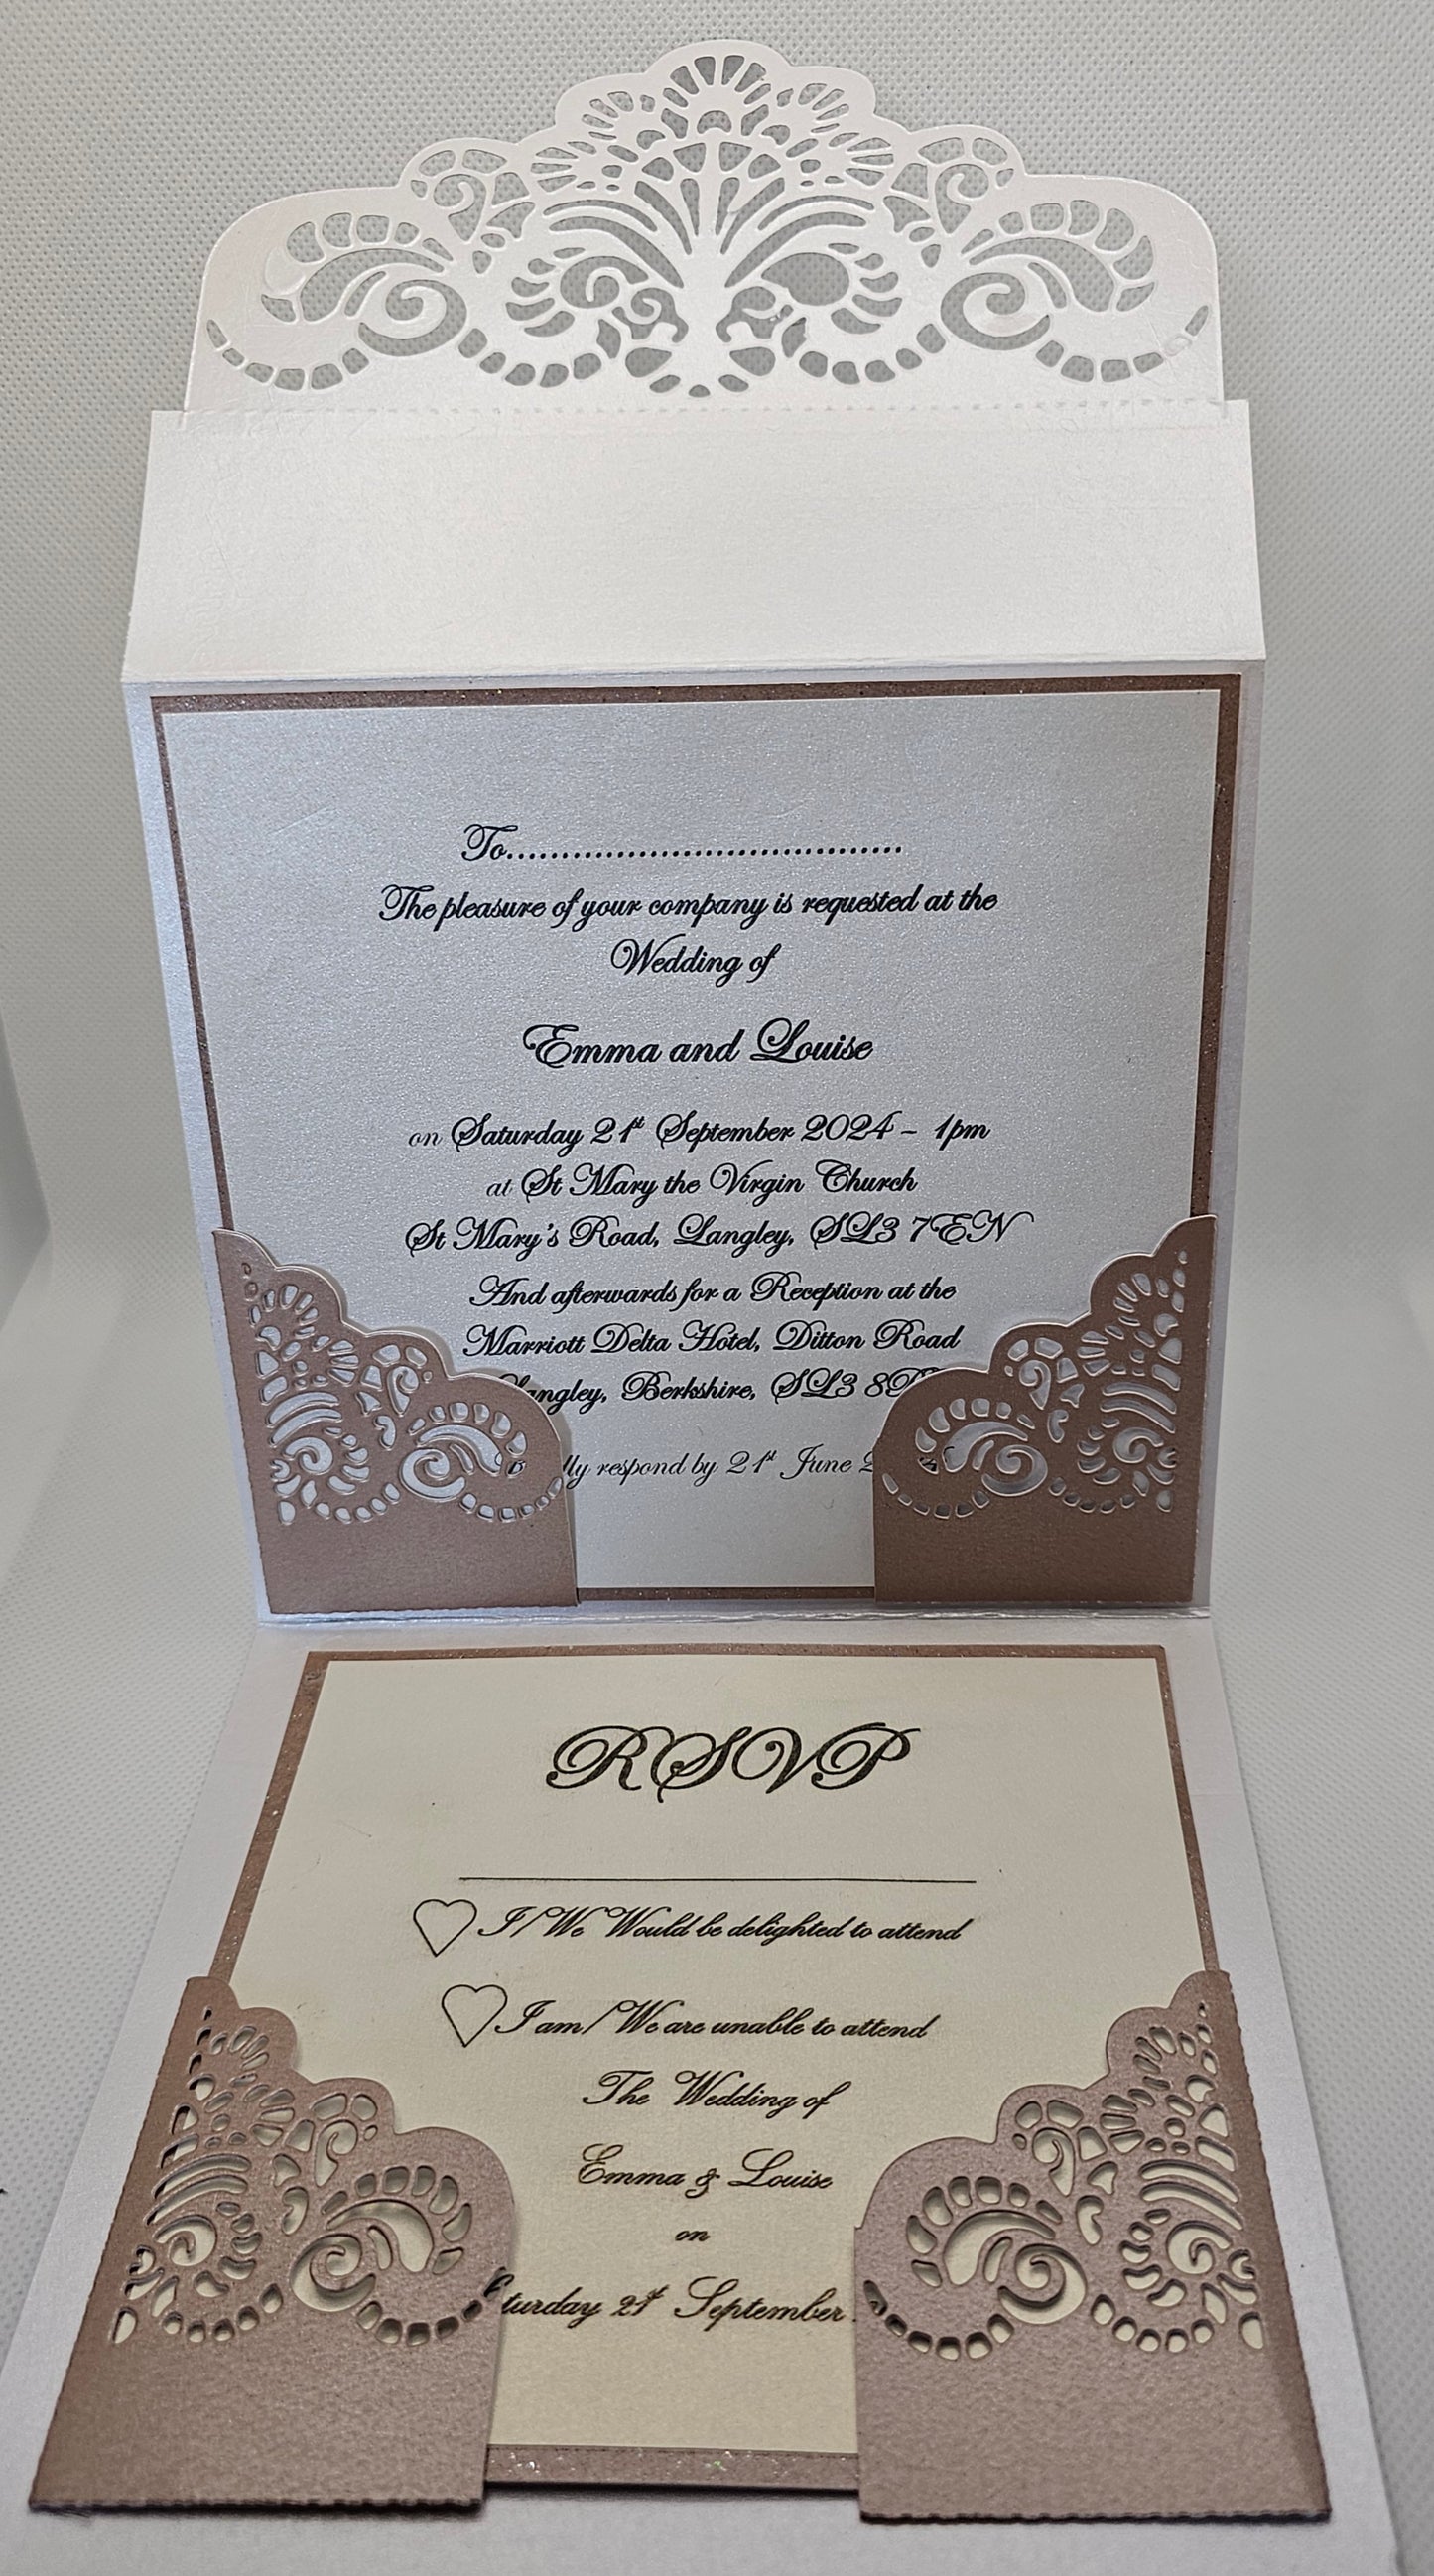 To......................................
The pleasure of your company is requested at the
Wedding of
Emma and Louise
on Saturday 21st September 2024 - 1pm
at St Mary the Virgin Church
St Mary's Road, Langley, SL3 7EN
And afterwards for a Reception at the
Marriott Delta Hotel, Ditton Road
Langley, Berkshire, SL3
respond by 21st June
RSVP
I/We Would be delighted to attend
I am/We are unable to attend
The Wedding of
Emma & Louise
on
Saturday 21st September